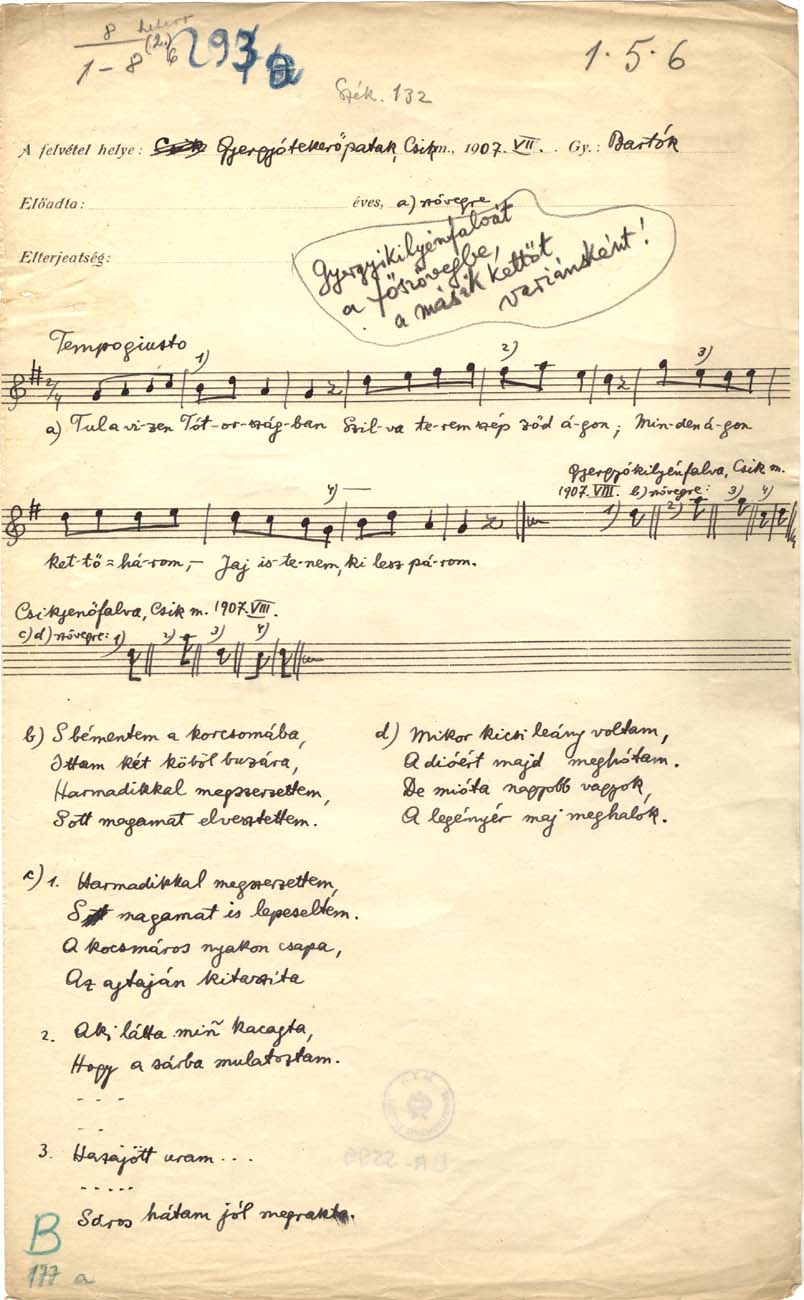 8
1-8 (2.) 6
293
1·5·6
Szék. 132
A felvétel helye: Gyergyótekerőpatak, Csikm., 1907. VII. Gy.: Bartók
Előadta: éves, a) szövegre
Elterjeatség:
Gyergyikilyénfalvát
a főszövegbe,
a másik kettőt
variánsként!
Tempogiusto
1) 2) 3)
2/4
a) Tul a vi-zen Tót-or-szág-ban Szil-va te-rem szép zöd á-gon; Min-den á-gon
Gyergyókilyénfalva, Csik m.
1907. VIII. b) szövegre:
4) 1) 2) 3) 4)
ket-tő = há-rom, – Jaj is-te-nem, ki lesz pá-rom.
Csikjenőfalva, Csik m. 1907. VIII.
c) d) szövegre: 1) 2) 3) 4)
b) S bémentem a korcsomába,
Ittam két köböl buzára,
Harmadikkal megszerzettem,
Sott magamat elvesztettem.
d) Mikor kicsi leány voltam,
A dióért majd meghótam.
De mióta nagyobb vagyok,
A legényér maj meghalok.
c) 1. Harmadikkal megszerzettem,
S magamat is lepeseltem.
A kocsmáros nyakon csapa,
Az ajtaján kitaszita
2. Aki látta miñ kacagta,
Hogy a sárba mulatoztam.
- - -
- -
3. Hazajött uram . . .
- - - - -
Sáros hátam jól megrakta.
B
177 a